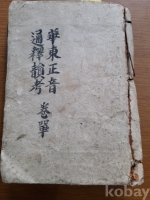 華東正音
通釋韻考 卷單
kobay